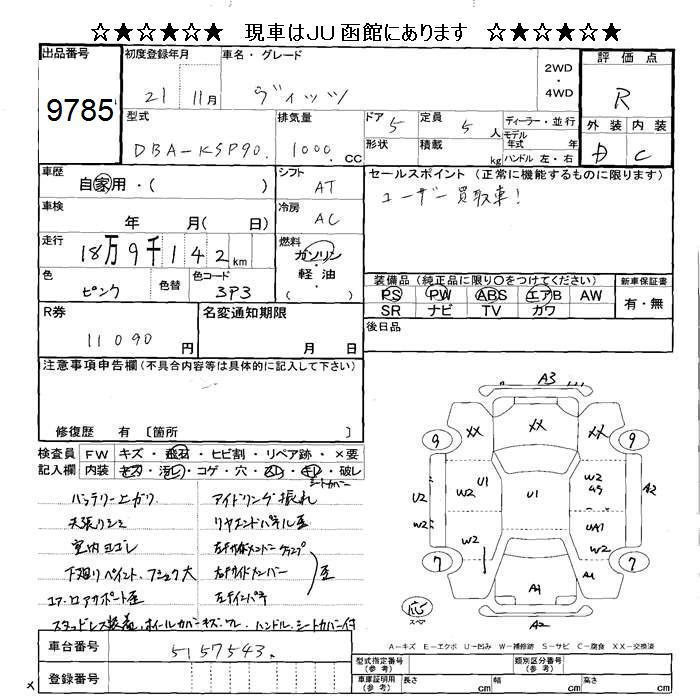 ☆★☆★☆★ 現車はJU函館にあります ☆★☆★☆★
出品番号 初度登録年月 車名・グレード 2WD・4WD 評価点
9785 21 11月 ヴィッツ R
型式 排気量 ドア 定員 ディーラー・並行 外装 内装
DBA-KSP90 1000 CC 5 5人 モデル年式 年 D C
形状 積載 kg ハンドル 左・右
車歴 シフト セールスポイント (正常に機能するものに限ります)
自家用・( ) AT ユーザー買取車!
車検 冷房
年 月( 日) AC
走行 燃料
18万9千142km ガソリン・軽油・( )
色 色替 色コード 装備品 (純正品に限り○をつけてください) 新車保証書
ピンク 3P3 PS PW ABS エアB AW 有・無
SR ナビ TV カワ
R券 名変通知期限 後日品
11090円 月 日
注意事項申告欄 (不具合内容等は具体的に記入して下さい)
修復歴 有 〔箇所 〕
検査員 FW キズ・飛石・ヒビ割・リペア跡・×要
記入欄 内装 キズ・汚レ・コゲ・穴・スレ・キレ・破レ
シートカバー
バッテリー上ガリ アイドリング振れ
天張りシミ リヤエンドパネル歪
室内ヨゴレ 右サイドメンバー
下廻りペイント、フショク大 右サイドメンバー 歪
コア・ロアサポート歪 左
スタッドレス装着、ホイールカバーキズ・ワレ・ハンドル、シートカバー付
車台番号 5157543
登録番号
A3
XX XX XX
9 9
U1 W2 A2
U2 W2 U1 W2
W2 W2 UA1
7 7
A1 A1
応 スペア A2
A-キズ E-エクボ U-凹み W-補修跡 S-サビ C-腐食 XX-交換済
型式指定番号(参考) 類別区分番号(参考)
車庫証明用(参考) 長さ cm 幅 cm 高さ cm